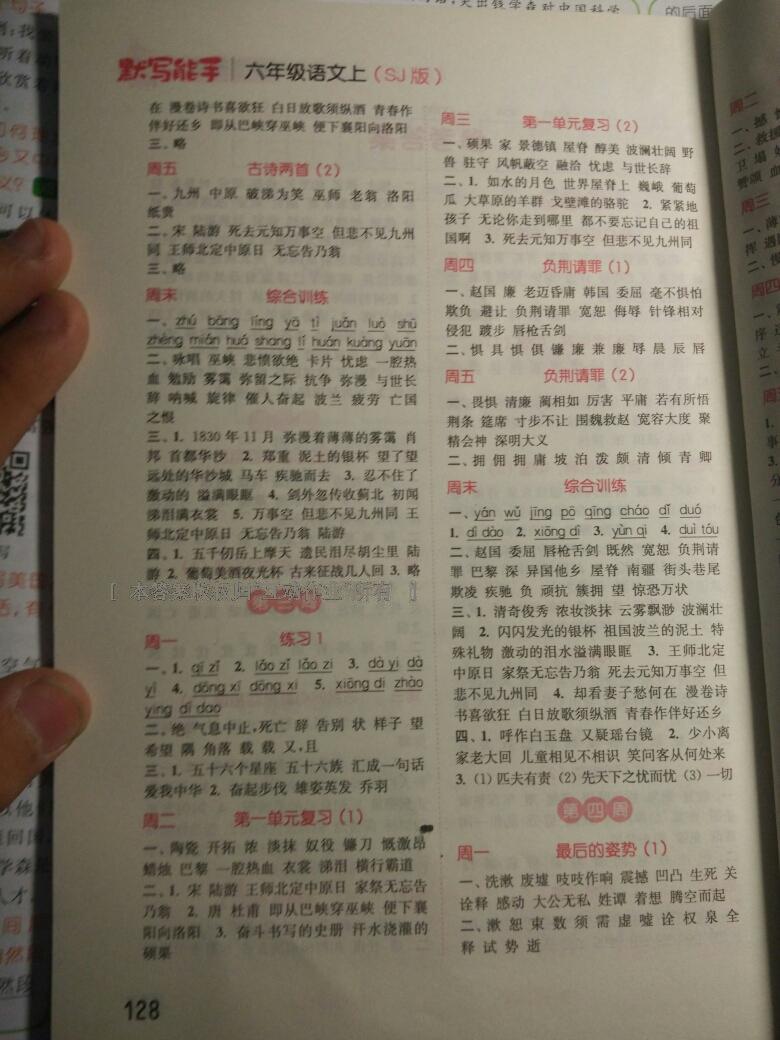 默写能手 六年级语文上(SJ版)
在 漫卷诗书喜欲狂 白日放歌须纵酒 青春作
伴好还乡 即从巴峡穿巫峡 便下襄阳向洛阳
三、略
周五 古诗两首(2)
一、九州 中原 破涕为笑 巫师 老翁 洛阳
纸贵
二、宋 陆游 死去元知万事空 但悲不见九州
同 王师北定中原日 无忘告乃翁
三、略
周末 综合训练
一、zhú bāng líng yā tì juǎn luò shū
zhèng mián huá shang lí huán kuàng yuān
二、咏唱 巫峡 悲愤欲绝 卡片 忧虑 一腔热
血 勉励 雾霭 弥留之际 抗争 弥漫 与世长
辞 呐喊 旋律 催人奋起 波兰 疲劳 亡国
之恨
三、1. 1830年11月 弥漫着薄薄的雾霭 肖
邦 首都华沙 2. 郑重 泥土的银杯 望了望
远处的华沙城 马车 疾驰而去 3. 忍不住了
激动的 溢满眼眶 4. 剑外忽传收蓟北 初闻
涕泪满衣裳 5. 万事空 但悲不见九州同 王
师北定中原日 无忘告乃翁 陆游
四、1. 五千仞岳上摩天 遗民泪尽胡尘里 陆
游 2. 葡萄美酒夜光杯 古来征战几人回 3. 略
周一 练习1
一、1. qī zǐ 2. lǎo zǐ lǎo zi 3. dà yì dà
yi 4. dōng xī dōng xi 5. xiōng di zhào
yìng dì dao
二、绝 气息中止,死亡 辞 告别 状 样子 望
希望 隅 角落 载 载 又,且
三、1. 五十六个星座 五十六族 汇成一句话
爱我中华 2. 奋起步伐 雄姿英发 乔羽
周二 第一单元复习(1)
一、陶瓷 开拓 浓 淡抹 奴役 镰刀 慨激昂
蜡烛 巴黎 一腔热血 衣裳 涕泪 横行霸道
二、1. 宋 陆游 王师北定中原日 家祭无忘告
乃翁 2. 唐 杜甫 即从巴峡穿巫峡 便下襄
阳向洛阳 3. 奋斗书写的史册 汗水浇灌的
硕果
128
周三 第一单元复习(2)
一、硕果 冢 景德镇 屋脊 醇美 波澜壮阔 野
兽 驻守 风帆蔽空 融洽 忧虑 与世长辞
二、1. 如水的月色 世界屋脊上 巍峨 葡萄
瓜 大草原的羊群 戈壁滩的骆驼 2. 紧紧地
孩子 无论你走到哪里 都不要忘记自己的祖
国啊 3. 死去元知万事空 但悲不见九州同
周四 负荆请罪(1)
一、赵国 廉 老迈昏庸 韩国 委屈 毫不惧怕
欺负 避让 负荆请罪 宽恕 侮辱 针锋相对
侵犯 踱步 唇枪舌剑
二、惧 具 惧 俱 镰 廉 兼 廉 辱 晨 辰 唇
周五 负荆请罪(2)
一、畏惧 清廉 蔺相如 厉害 平庸 若有所悟
荆条 筵席 寸步不让 围魏救赵 宽容大度 聚
精会神 深明大义
二、拥 佣 拥 庸 坡 泊 泼 颇 清 倾 青 卿
周末 综合训练
一、yán wǔ jīng pō qīng cháo dǐ duó
1. dì dào 2. xiōng dì 3. yùn qi 4. duì tóu
二、赵国 委屈 唇枪舌剑 既然 宽恕 负荆请
罪 巴黎 深 异国他乡 屋脊 南疆 街头巷尾
欺凌 疾驰 负 顽抗 簇拥 望 惊恐万状
三、1. 清奇俊秀 浓妆淡抹 云雾飘渺 波澜壮
阔 2. 闪闪发光的银杯 祖国波兰的泥土 特
殊礼物 激动的泪水溢满眼眶 3. 王师北定
中原日 家祭无忘告乃翁 死去元知万事空 但
悲不见九州同 4. 却看妻子愁何在 漫卷诗
书喜欲狂 白日放歌须纵酒 青春作伴好还乡
四、1. 呼作白玉盘 又疑瑶台镜 2. 少小离
家老大回 儿童相见不相识 笑问客从何处来
3. (1) 匹夫有责 (2) 先天下之忧而忧 (3) 一切
第四周
周一 最后的姿势(1)
一、洗漱 废墟 吱吱作响 震撼 凹凸 生死 关
诠释 感动 大公无私 姓谭 着想 腾空而起
二、漱 恕 束 数 须 需 虚 嘘 诠 权 泉 全
释 试 势 逝